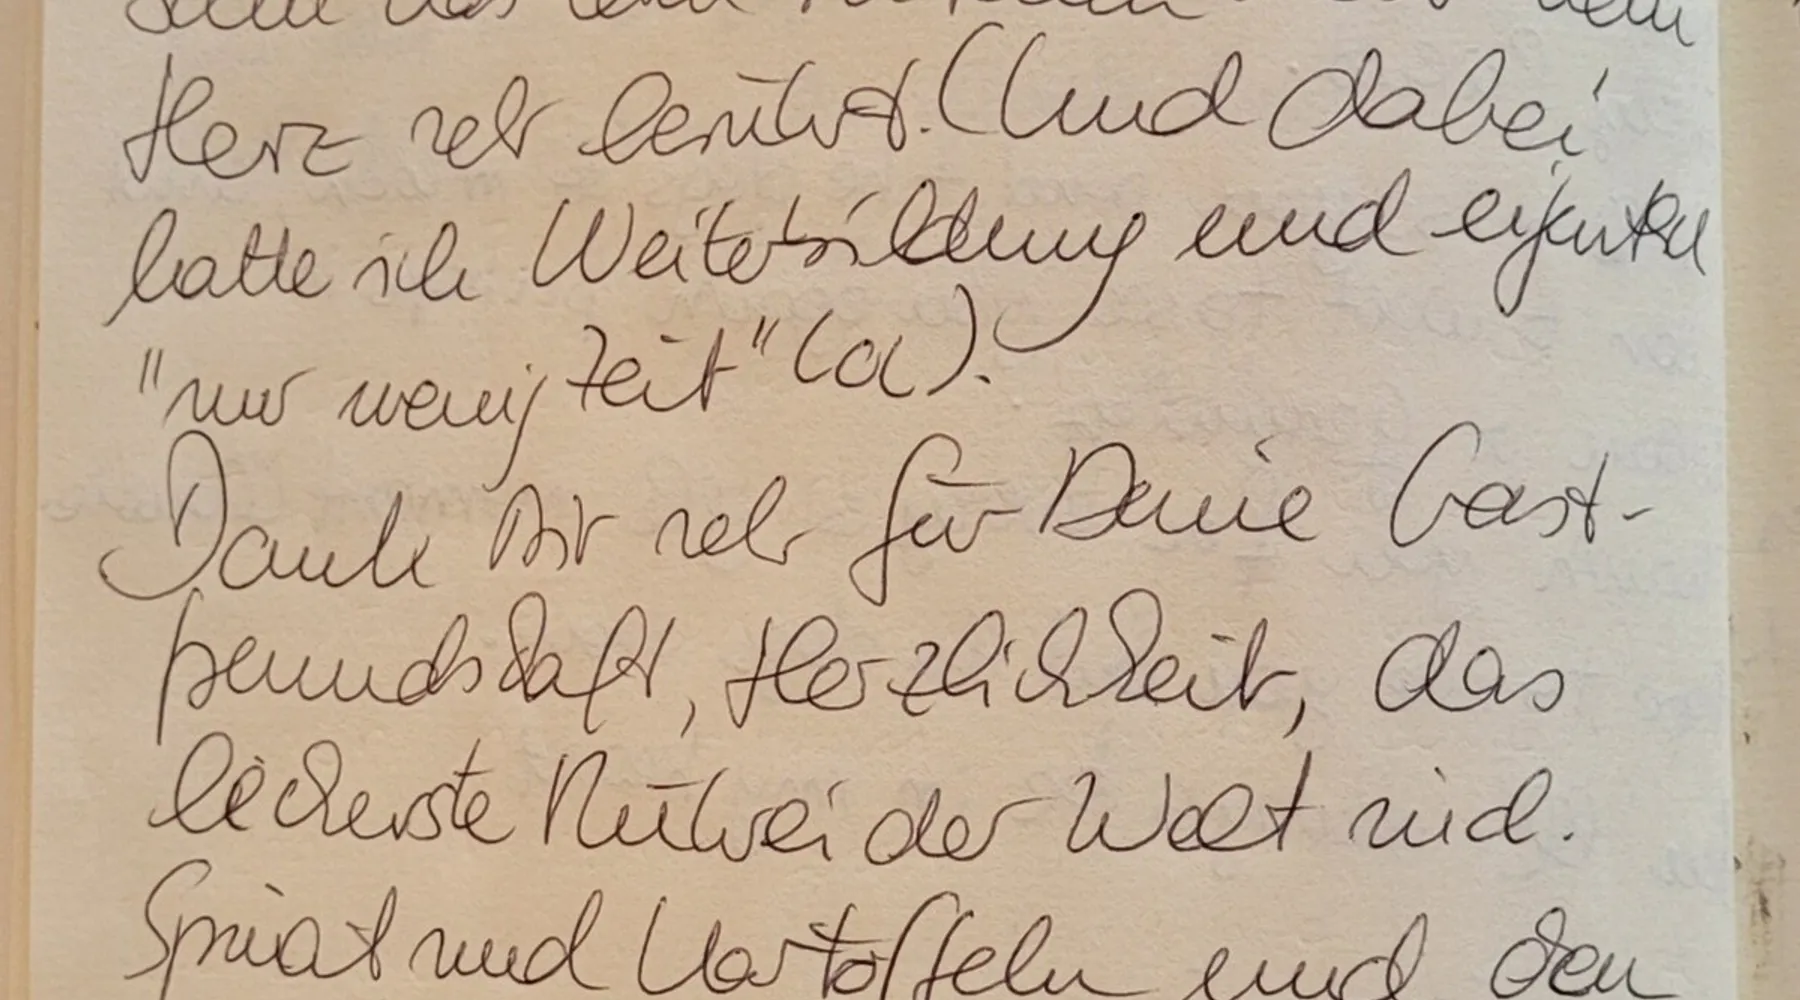 Herz sehr berührt. (Und dabei
hatte ich Weiterbildung und eigentl
"nur wenig Zeit" (a).
Danke Dir sehr für Deine Gast-
freundschaft, Herzlichkeit, das
leckerste Rührei der Welt mid.
Spinat und Kartoffeln und den